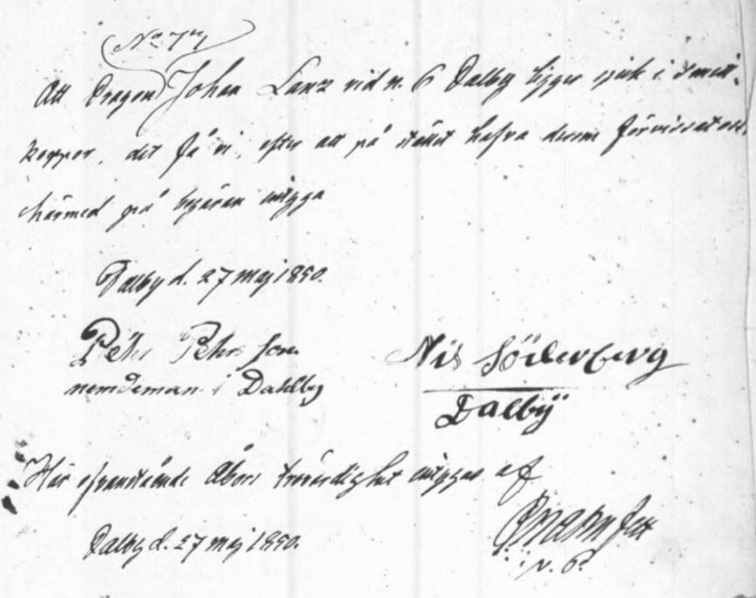 No 74
Att Dragon Johan Lanz vid n. 6 Dalby ligger sjuk i smitt-
koppor, det få vi, efter att på stället hafva derom förvissat oss
härmed på begäran intyga
Dalby d. 27 maj 1850.
Pehr Pehrsson
nemdeman i Dahlby
Nis Söderberg
Dalby
Här ofvanstående Åbors trovärdighet intygas af
Dalby d. 27 maj 1850.
v. P.